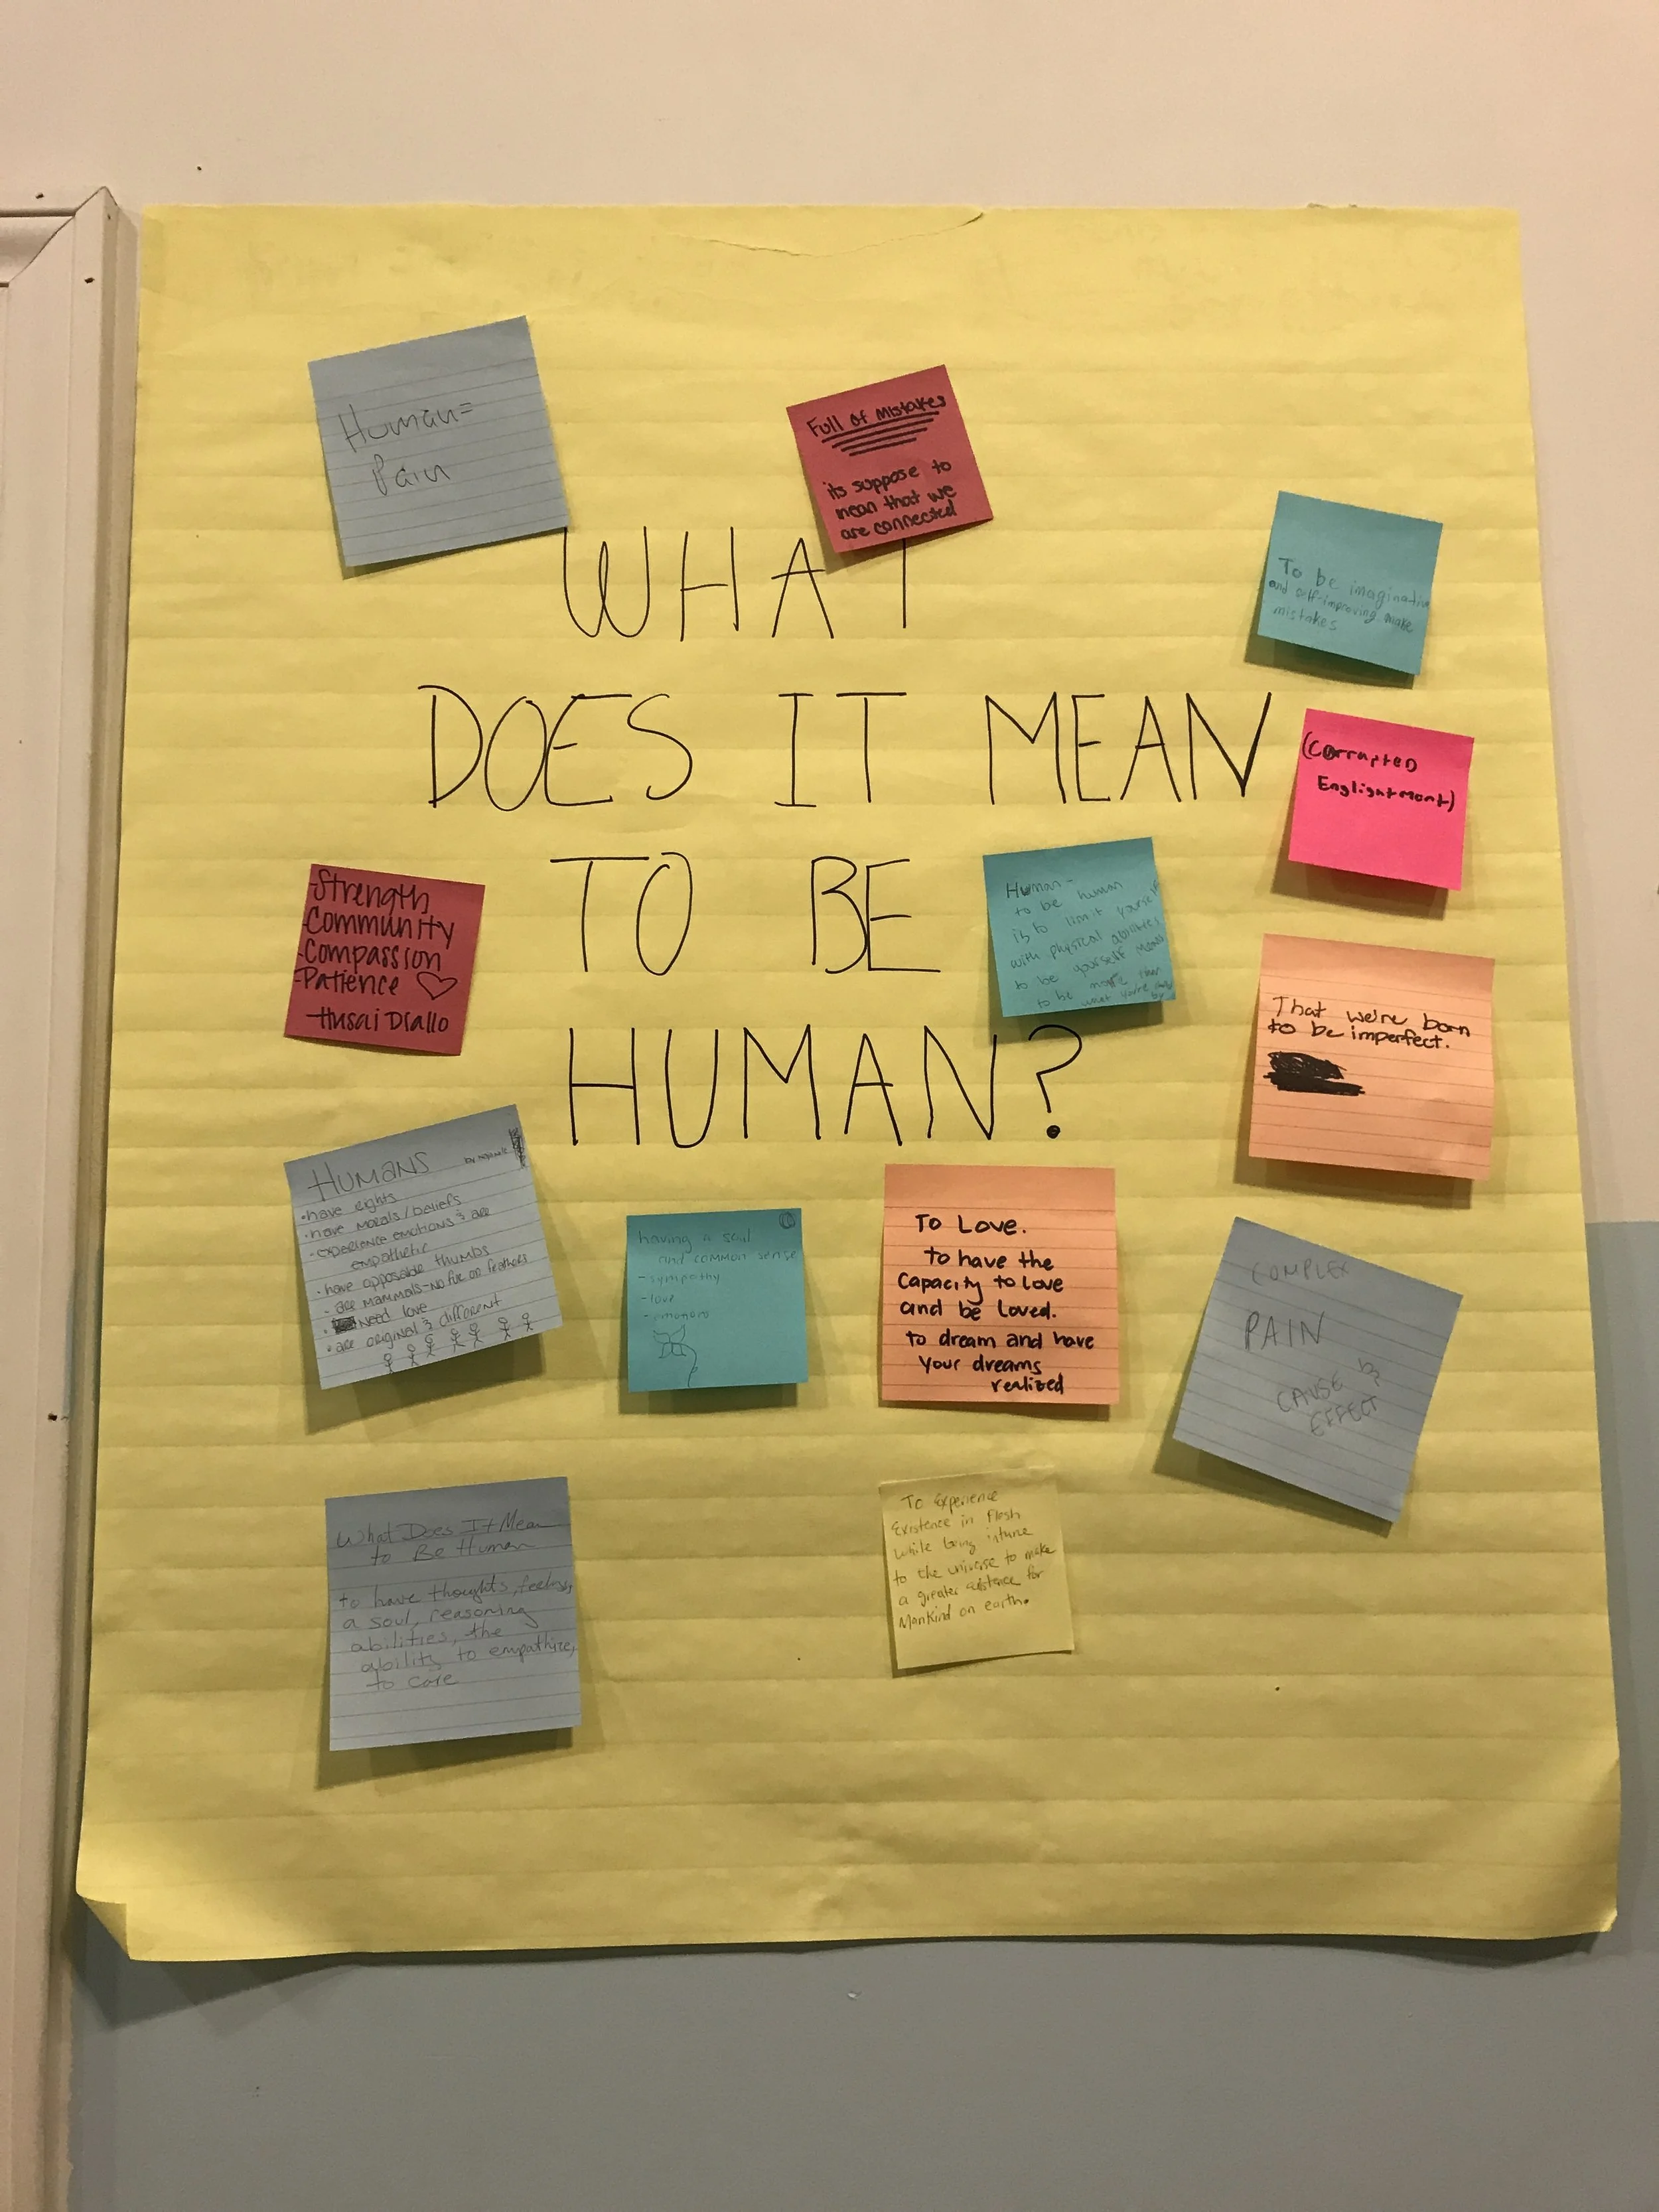 Human=
Pain
Full of Mistakes
its suppose to
mean that we
are connected
WHAT
DOES IT MEAN
TO BE
HUMAN?
To be imaginative
and self-improving make
mistakes
(Corrupted
Englightment)
Strength
-Community
-Compassion
-Patience ♡
-Husai Diallo
Human-
to be human
is to limit yourself
with physical abilities
to be yourself means
to be more than
what you're
by
That we're born
to be imperfect.
HUMANS
by
•have rights
•have morals/beliefs
-experience emotions & are
empathetic
•have opposable thumbs
- are mammals-no fur or feathers
• Need love
•are original & different
having a soul
and common sense
-sympathy
-love
-emotions
To Love.
to have the
Capacity to Love
and be Loved.
to dream and have
your dreams
realized
COMPLEX
PAIN
CAUSE &
EFFECT
What Does It Mean
to Be Human
to have thoughts, feelings,
a soul, reasoning
abilities, the
ability to empathize,
to care
To Experience
Existence in Flesh
while being intune
to the universe to make
a greater existence for
Mankind on earth.